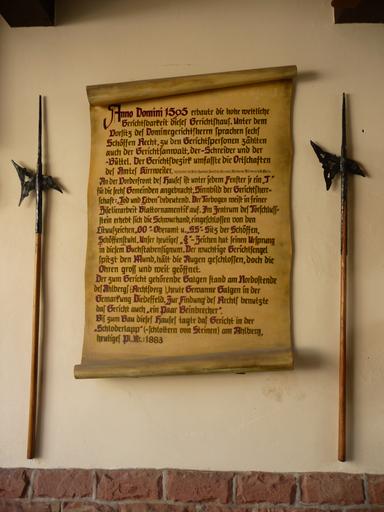 Anno Domini 1595 erbaute die hohe weltliche
Gerichtsbarkeit dieses Gerichtshaus. Unter dem
Vorsitz des Dominegerichtsherrn sprachen sechs
Schöffen Recht, zu den Gerichtspersonen zählten
auch der Gerichtsanwalt, der-Schreiber und der
-Büttel. Der Gerichtsbezirk umfaßte die Ortschaften
des Amtes Kirrweiler,
An der Vorderfront des Hauses ist unter jedem Fenster je ein „T"
für die sechs Gemeinden angebracht, Sinnbild der Gerichtsherr-
schaft „Tod und Leben" bedeutend. Der Torbogen weist in seiner
Ziselierarbeit Blattornamentik auf. Im Zentrum des Torschluß-
stein erhebt sich die Schmuckhand, eingeschlossen von den
Literalzeichen, „OO"- Oberamt u. „SS"- Sitz der Schöffen,
Schöffenstuhl. Unser heutiges „§"- Zeichen hat seinen Ursprung
in diesem Buchstabensignum. Der wuchtige Gerichtsengel
spitzt den Mund, hält die Augen geschlossen, doch die
Ohren groß und weit geöffnet.
Der zum Gericht gehörende Galgen stand am Nordostende
des Ahlberg: Rechtsberg, heute Gewanne Galgen in der
Gemarkung Diedesfeld. Zur Findung des Rechts benutzte
das Gericht auch „ein Paar Beinbrecher".
Bis zum Bau dieses Hauses tagte das Gericht in der
„Schloderlapp" (-schlottern von Steinen) am Ahlberg,
heutiges Pl. Nr.: 1883